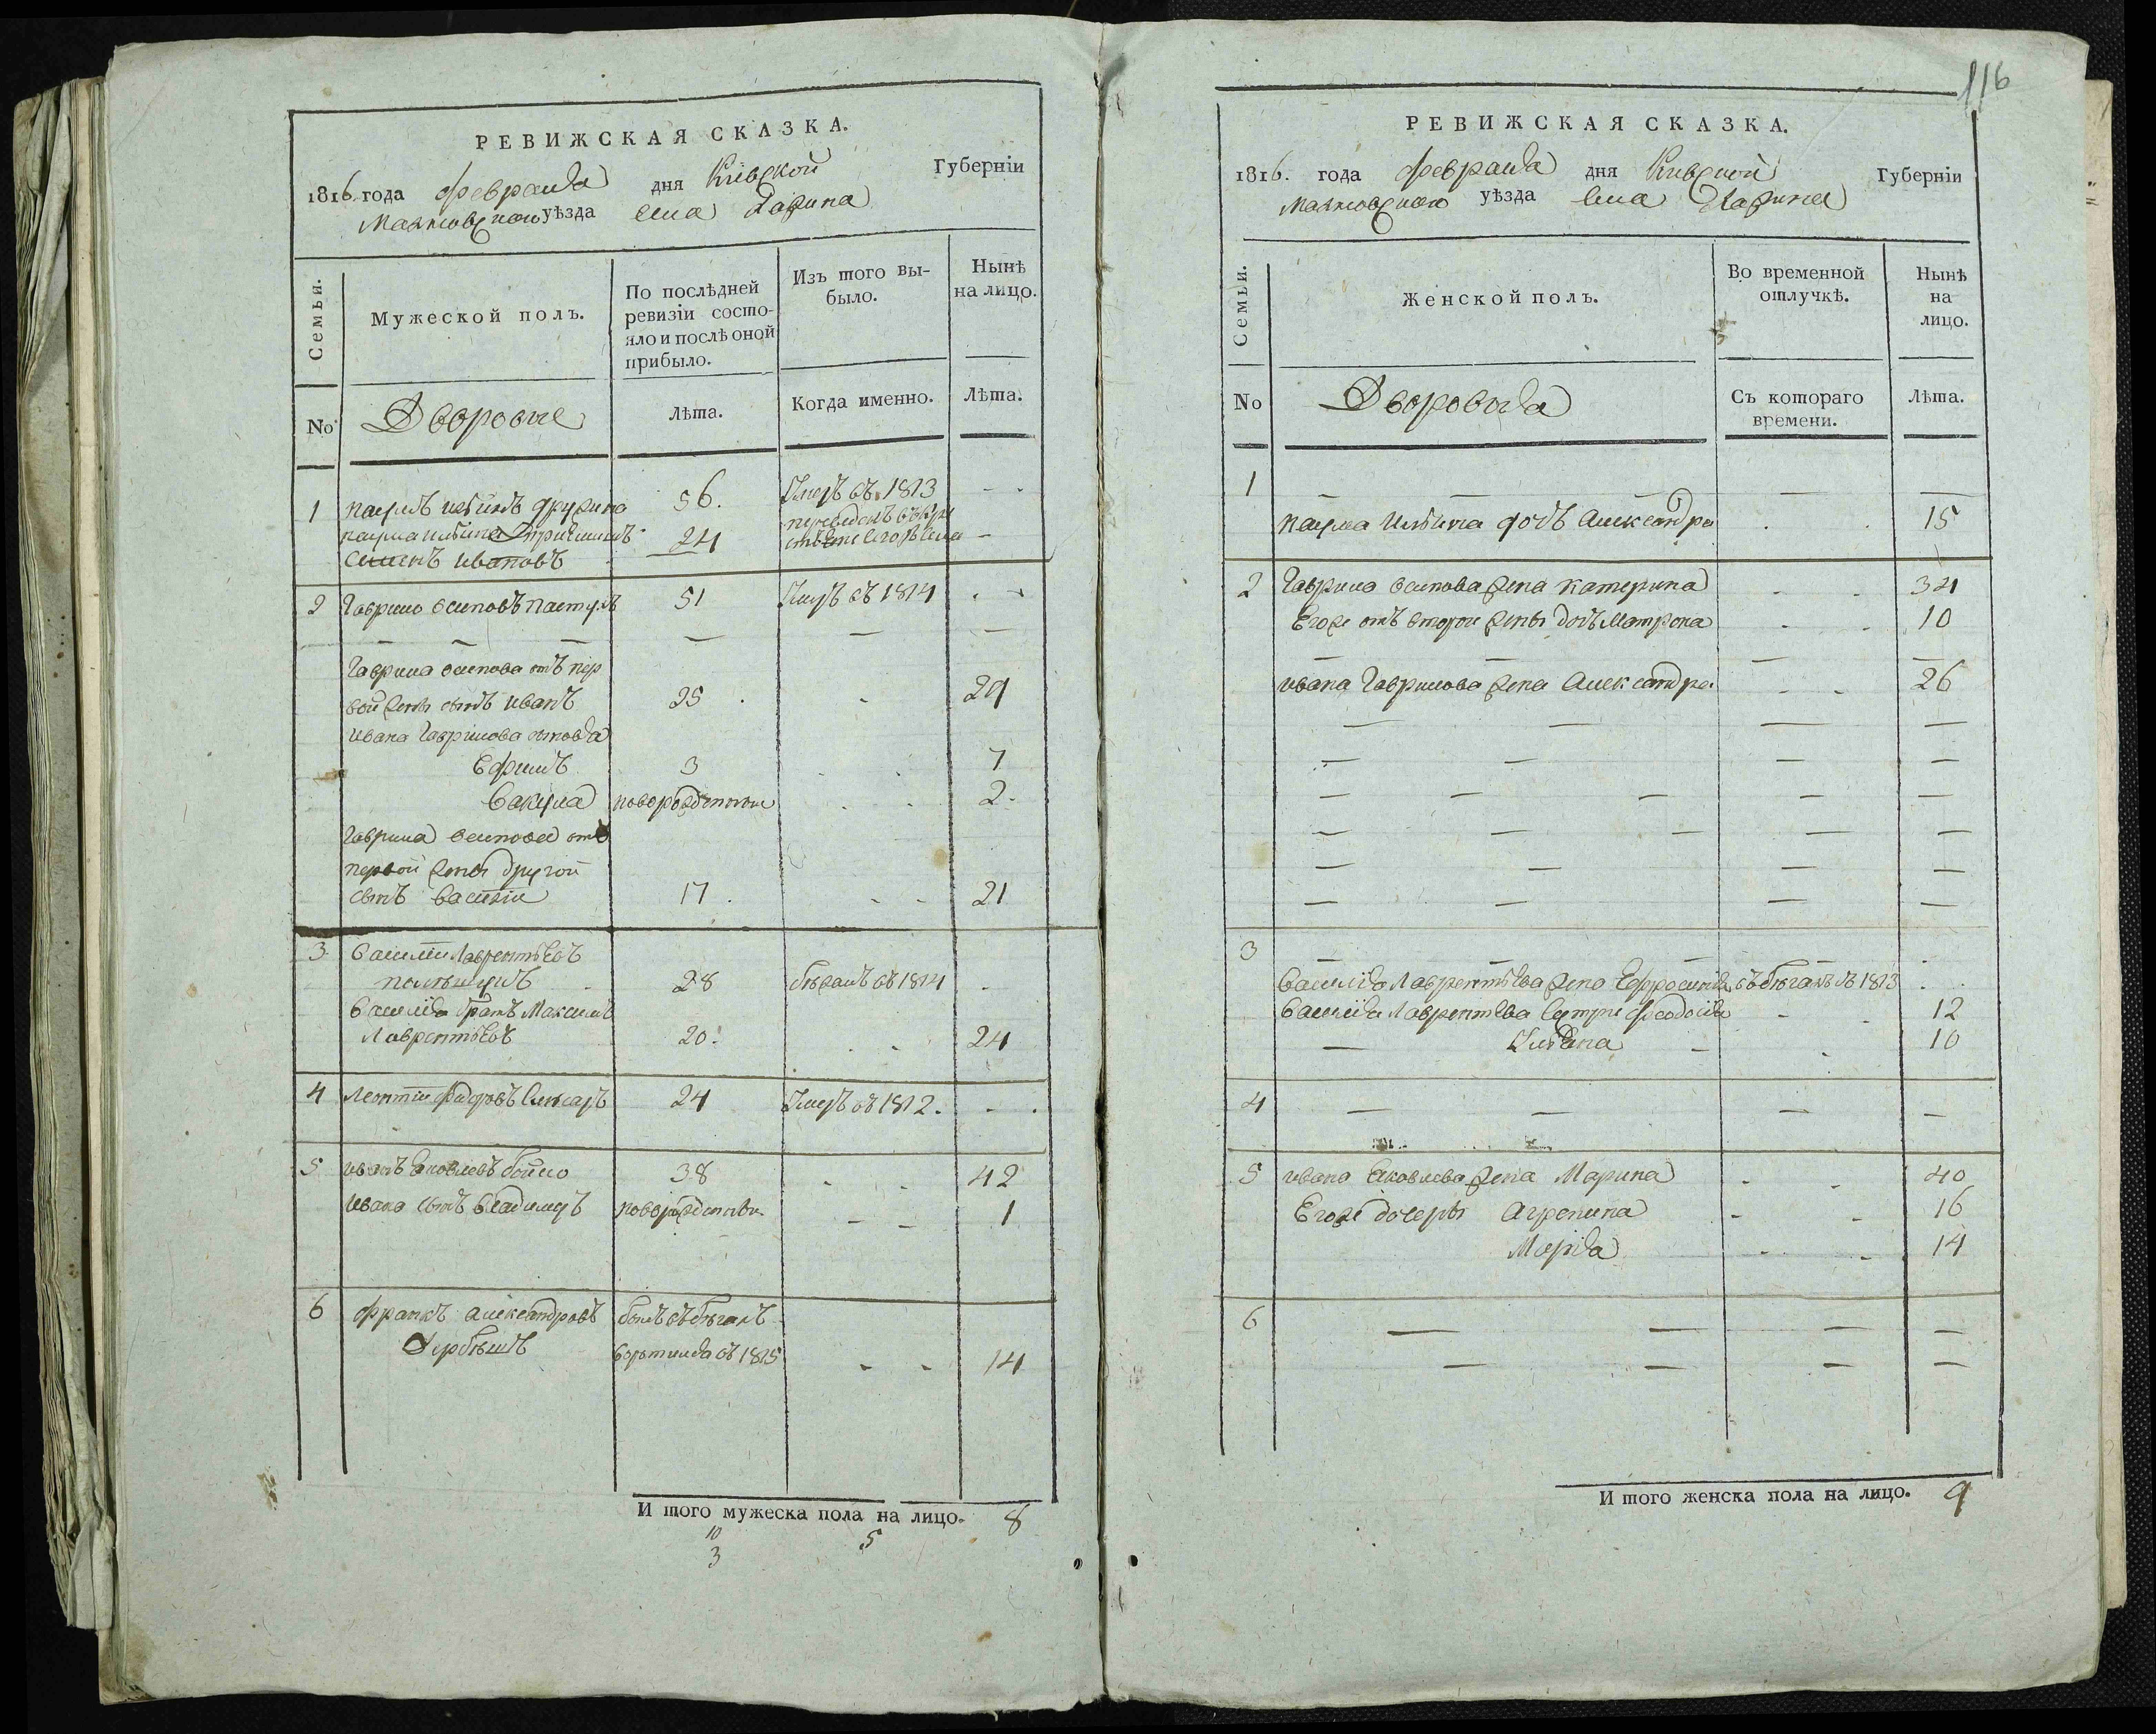 116
РЕВИЖСКАЯ СКАЗКА.
1816. года февраля дня Киевской Губернїи
уѣзда села
Семьи.
Мужеской полъ.
По послѣдней
ревизїи состо-
яло и послѣ оной
прибыло.
Изъ того вы-
было.
Нынѣ
на лицо.
No
Дворовые
Лѣта.
Когда именно.
Лѣта.
1 56. Умеръ въ 1813
24
Семенъ Ивановъ
2 Гаврило Осиповъ Пастухъ 51 Умеръ въ 1814
Гаврила Осипова отъ пер
вой жены сынъ Иванъ 25 29
Ивана Гаврилова сыновья
Ефимъ 3 7
Вакула новорожденные 2.
Гаврила Осипова отъ
первой жены другой
сынъ Василїй 17 21
3 Василїй Лаврентьевъ
28 бѣжалъ въ 1814
Василїя братъ Максимъ
Лаврентьевъ 20. 24
4 Леонтїй Федоровъ Слюсаръ 24 Умеръ въ 1812.
5 Иванъ Яковлевъ Бойко 38 42
Ивана сынъ Владимеръ новорожденный 1
6 Франкъ Александровъ былъ въ бѣгахъ
въ 1815 14
И того мужеска пола на лицо. 8
10 5
3
РЕВИЖСКАЯ СКАЗКА.
1816. года февраля дня Киевской Губернїи
уѣзда села
Семьи.
Женской полъ.
Во временной
отлучкѣ.
Нынѣ
на
лицо.
No
Дворовыя
Съ котораго
времени.
Лѣта.
1
Наума Ильина дочь Александра 15
2 Гаврила Осипова жена Катерина 34
Егоже отъ второй жены дочь Матрона 10
Ивана Гаврилова жена Александра 26
3
Василїя Лаврентьева жена Ефросинїя въ бѣгахъ съ 1813
Василїя Лаврентьева сестры Феодосїя 12
Улїяна 10
4
5 Ивана Яковлева жена Марина 40
Егоже дочеры Агрепина 16
Марїя 14
6
И того женска пола на лицо. 9